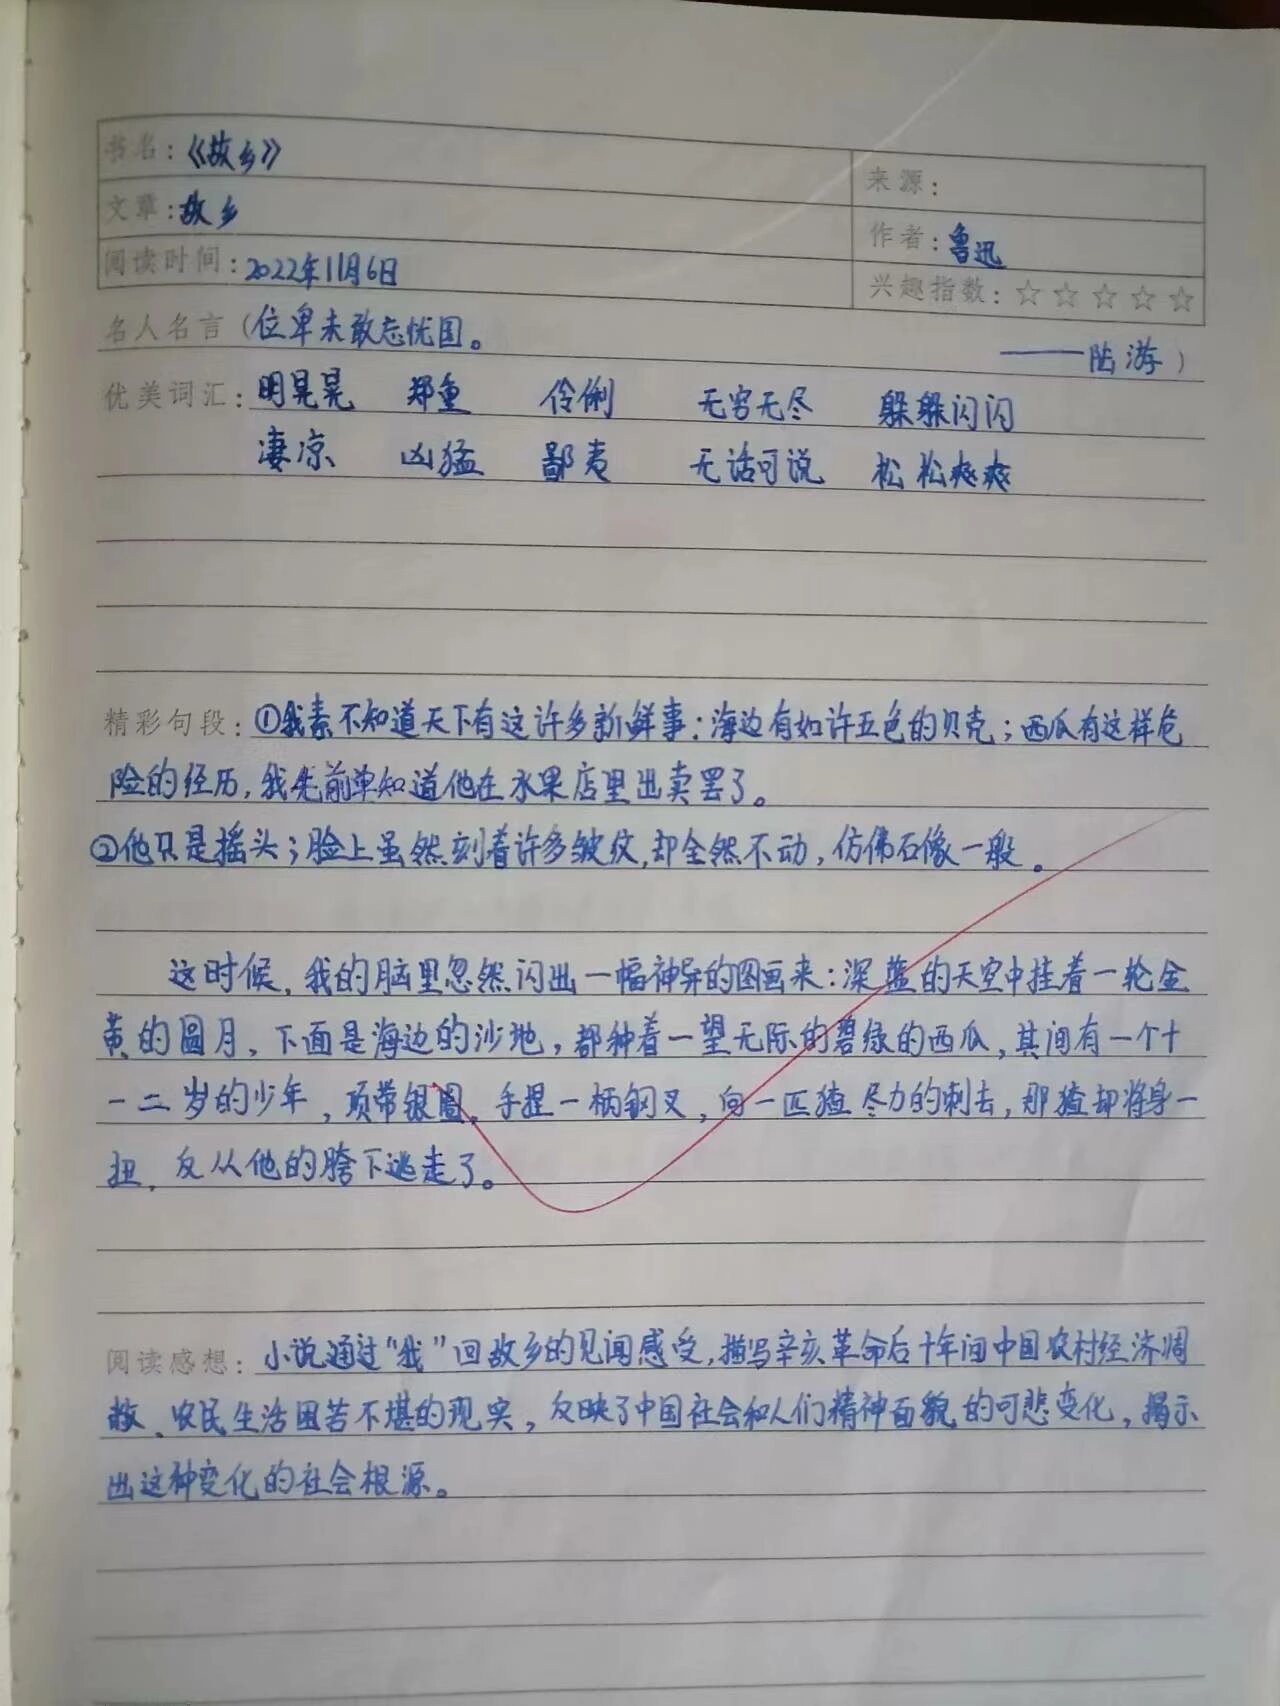 书名：《故乡》
来源：
文章：故乡
作者：鲁迅
阅读时间：2022年11月6日
兴趣指数：☆☆☆☆☆
名人名言（位卑未敢忘忧国。
——陆游）
优美词汇：明晃晃 郑重 伶俐 无穷无尽 躲躲闪闪
凄凉 凶猛 鄙夷 无话可说 松松爽爽
精彩句段：①我素不知道天下有这许多新鲜事：海边有如许五色的贝壳；西瓜有这样危
险的经历，我先前单知道他在水果店里出卖罢了。
②他只是摇头；脸上虽然刻着许多皱纹，却全然不动，仿佛石像一般。
这时候，我的脑里忽然闪出一幅神异的图画来：深蓝的天空中挂着一轮金
黄的圆月，下面是海边的沙地，都种着一望无际的碧绿的西瓜，其间有一个十
一二岁的少年，项带银圈，手捏一柄钢叉，向一匹猹尽力的刺去，那猹却将身一
扭，反从他的胯下逃走了。
阅读感想：小说通过“我”回故乡的见闻感受，描写辛亥革命后十年间中国农村经济凋
敝、农民生活困苦不堪的现实，反映了中国社会和人们精神面貌的可悲变化，揭示
出这种变化的社会根源。